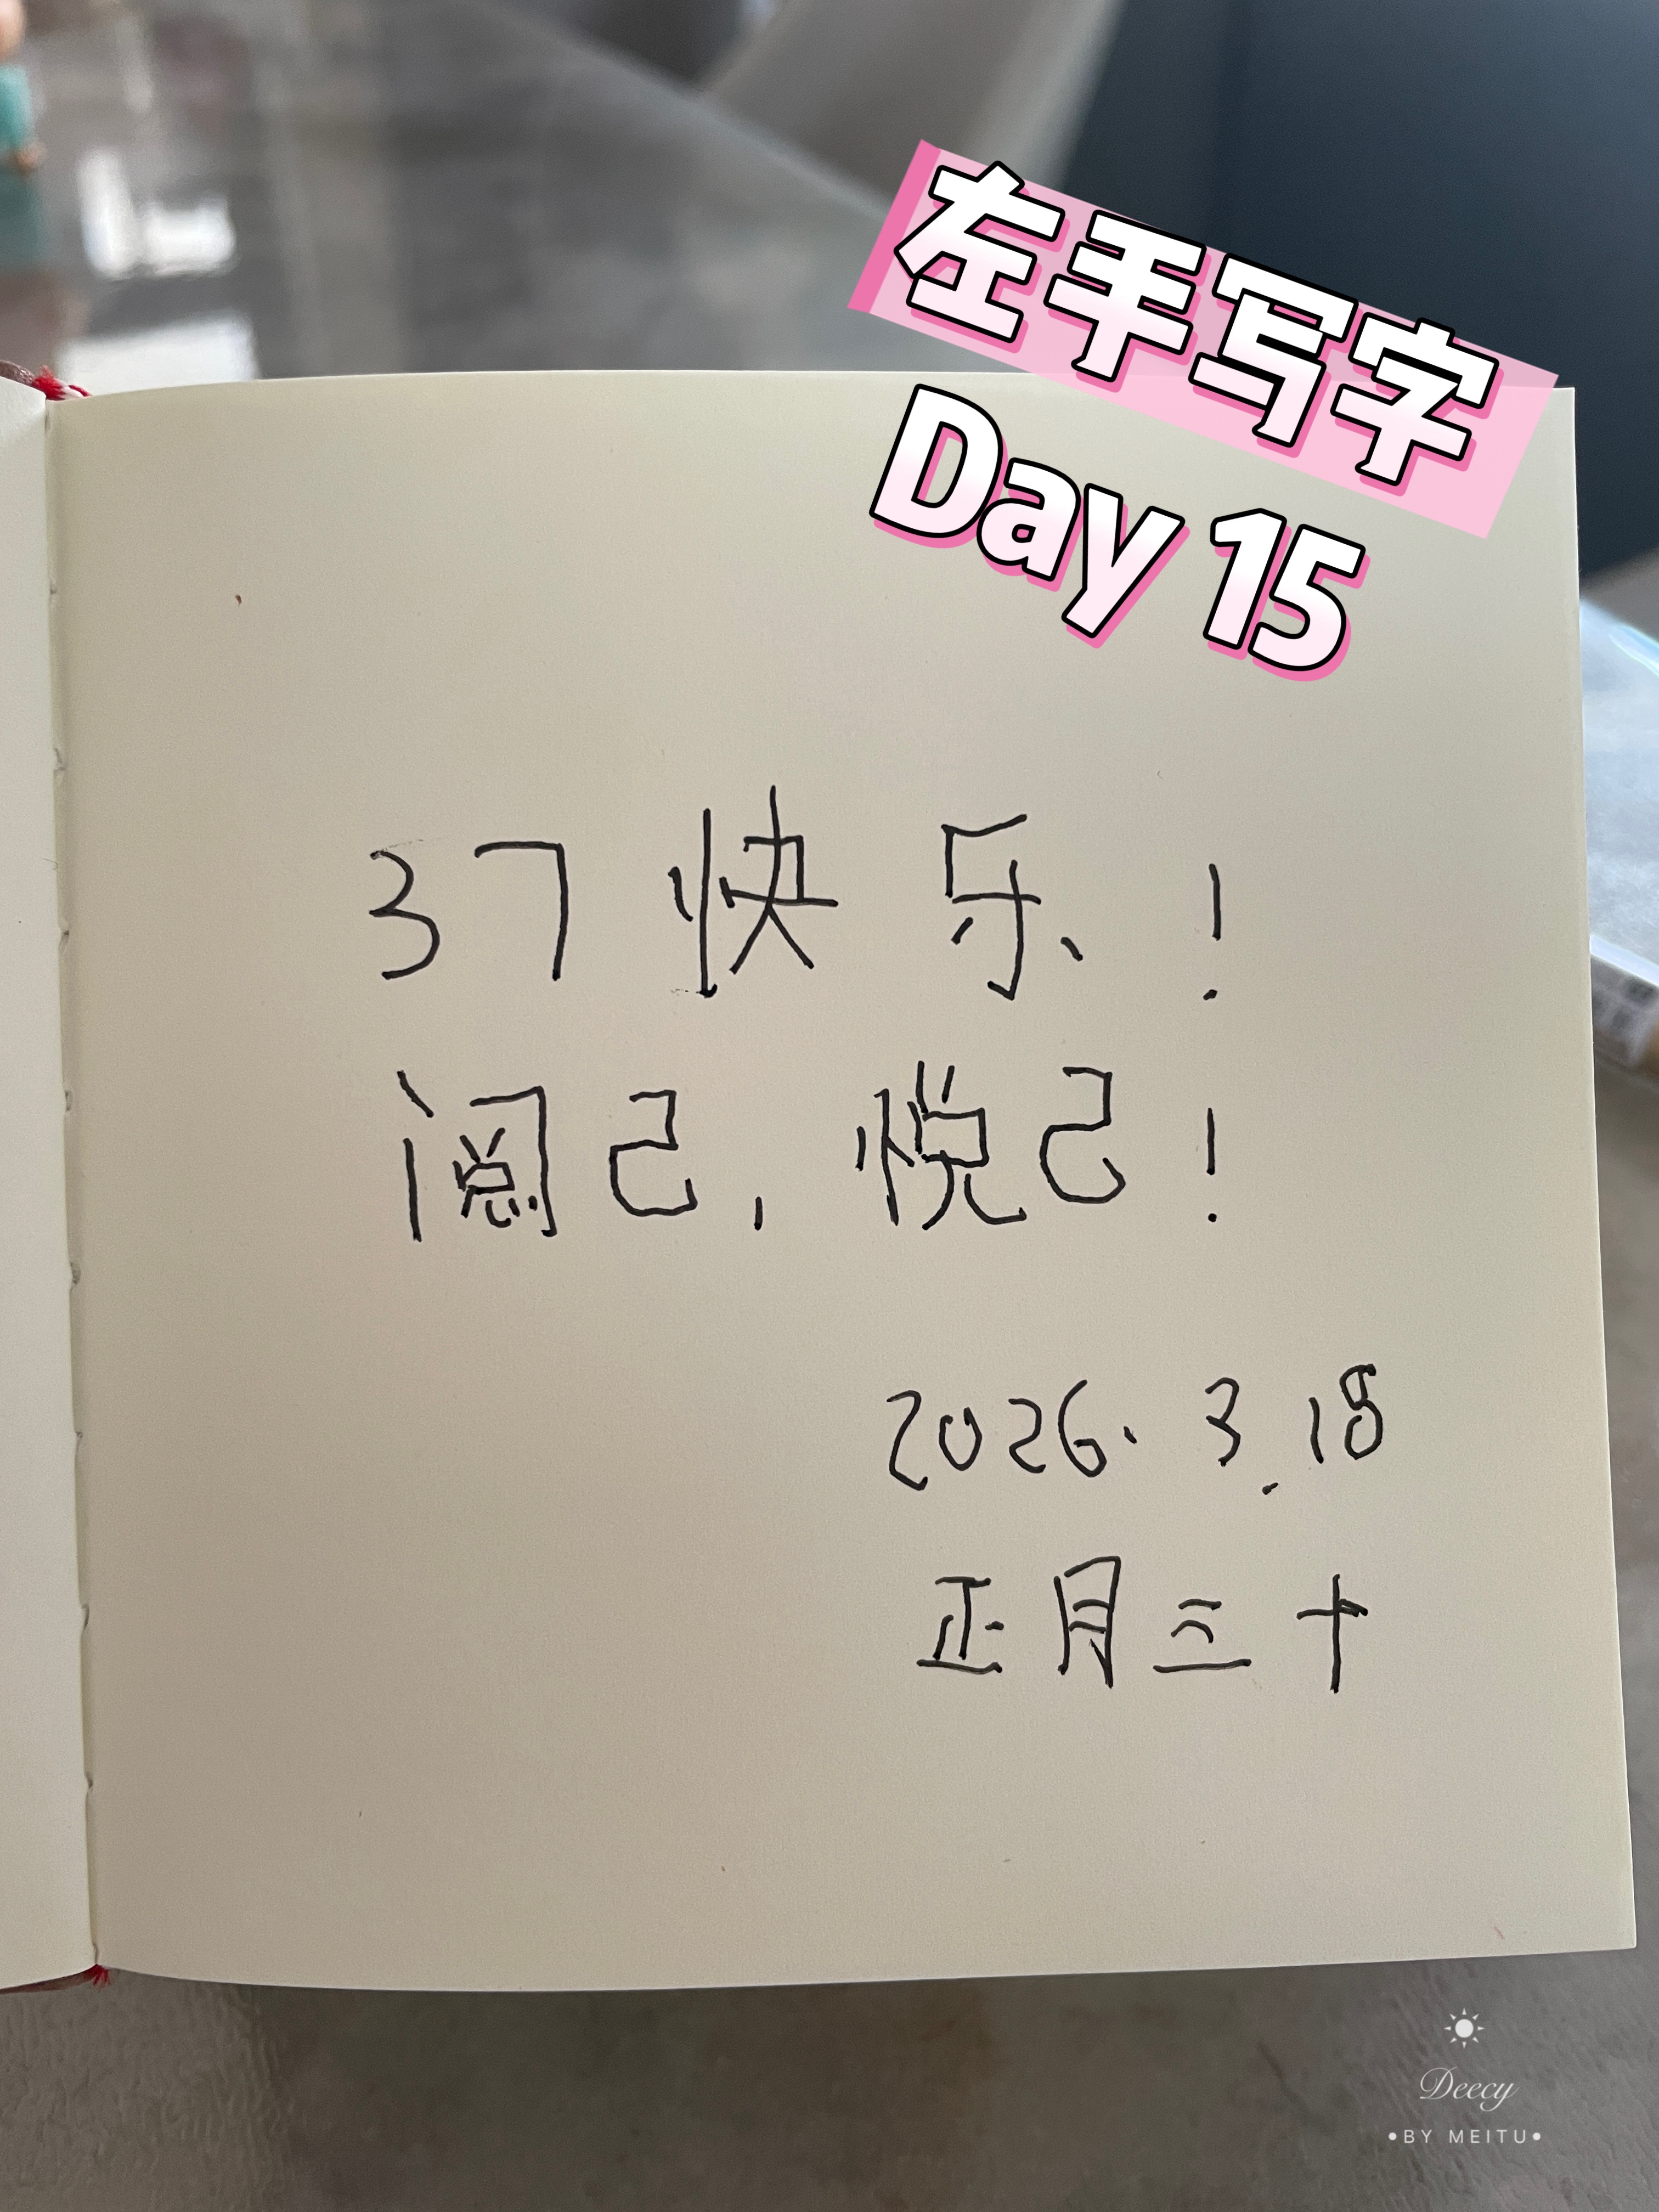 左手写字
Day 15
37 快乐！
阅己，悦己！
2026.3.18
正月三十
Deecy
•BY MEITU•